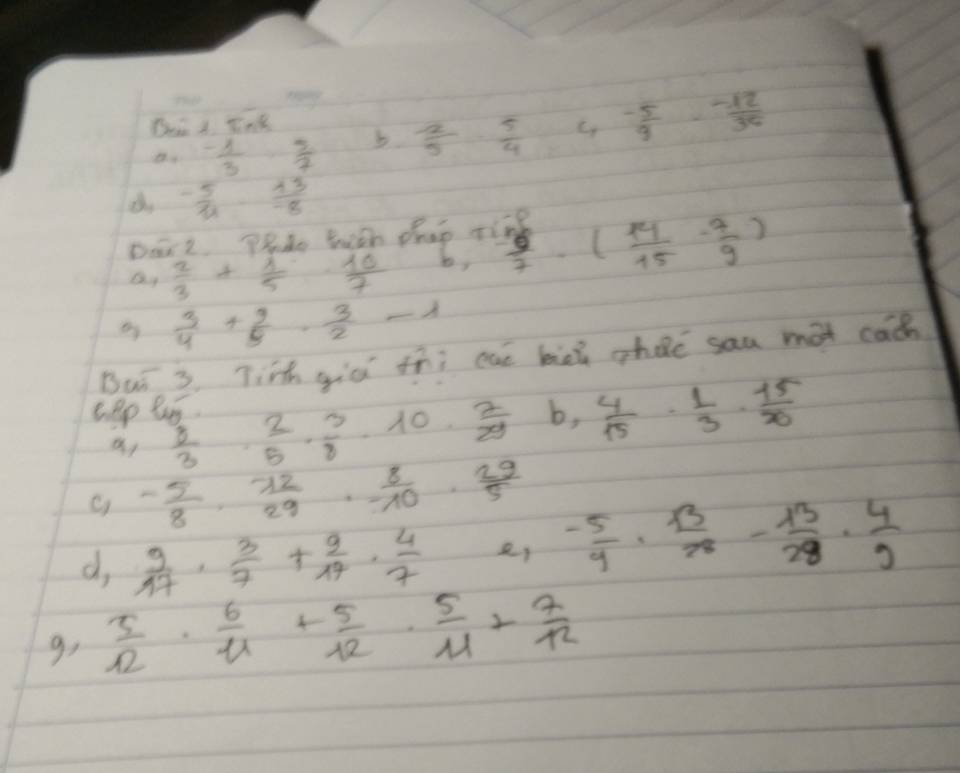 Bài 1. Tính
a, -1/3 . 5/7 b. 2/5 . 5/4 c, -5/9 . -12/35
d, -5/11 . 13/-8
Bài 2. phép Tính
a, 2/3 + 1/5 . 10/7 b, /7 . ( 14/15 . 7/9 )
3/4 + /5 . 3/2 - 1
Bài 3. Tính giá trị các biểu thức sau một cách
hợp lý.
a, /3 . 2/5 . 3/8 . 10 . /29 b, 4/15 . 1/3 . 15/20
c, -5/8 . -12/29 . 8/-10 . 29/5
d, 9/17 . 3/7 + 9/17 . 4/7 e, -5/9 . 13/28 - 13/28 . 4/9
g, 5/12 . 6/11 + 5/12 . 5/11 + 7/12